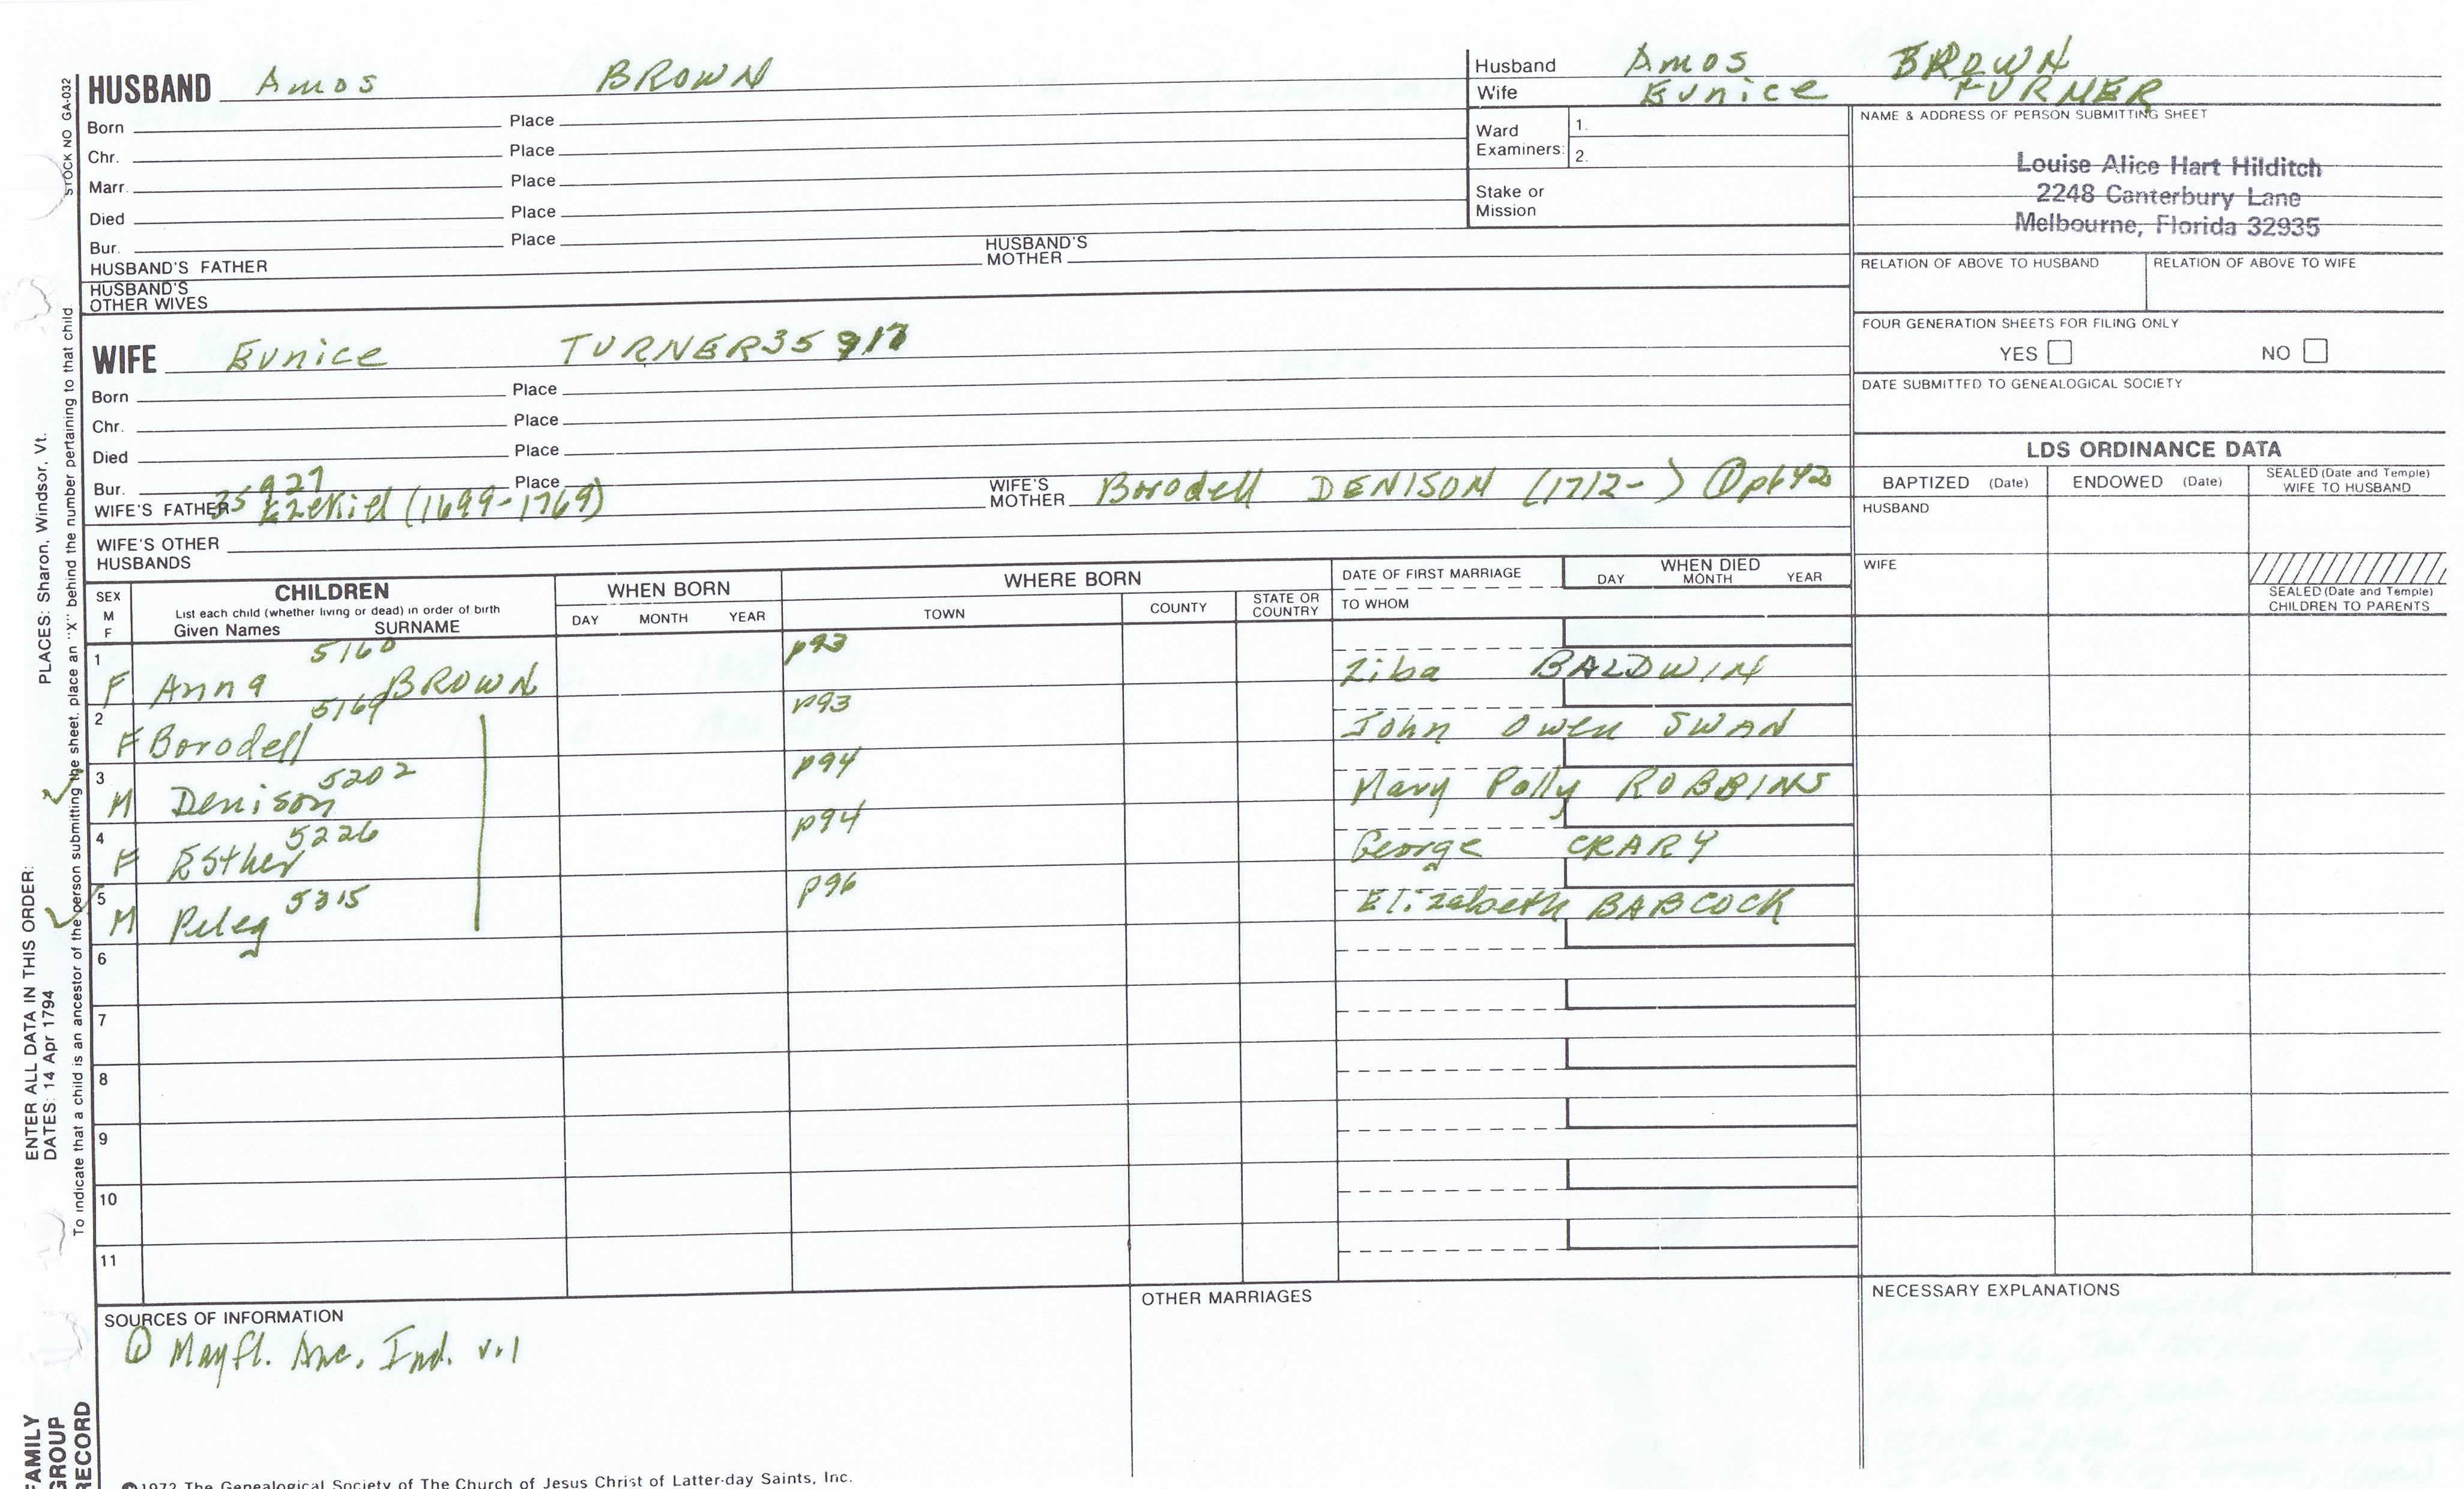 HUSBAND Amos BROWN
Born Place
Chr. Place
Marr. Place
Died Place
Bur. Place
HUSBAND'S FATHER HUSBAND'S MOTHER
HUSBAND'S OTHER WIVES
Husband Amos BROWN
Wife Eunice TURNER
Ward Examiners: 1.
2.
Stake or Mission
NAME & ADDRESS OF PERSON SUBMITTING SHEET
Louise Alice Hart Hilditch
2248 Canterbury Lane
Melbourne, Florida 32935
RELATION OF ABOVE TO HUSBAND RELATION OF ABOVE TO WIFE
FOUR GENERATION SHEETS FOR FILING ONLY
YES NO
DATE SUBMITTED TO GENEALOGICAL SOCIETY
WIFE Eunice TURNER 35917
Born Place
Chr. Place
Died Place
Bur. Place
WIFE'S FATHER 35927 Ezekiel (1699-1769) WIFE'S MOTHER Borodell DENISON (1712- ) ① p642
WIFE'S OTHER HUSBANDS
LDS ORDINANCE DATA
BAPTIZED (Date) ENDOWED (Date) SEALED (Date and Temple) WIFE TO HUSBAND
HUSBAND
WIFE
SEALED (Date and Temple) CHILDREN TO PARENTS
SEX M F
CHILDREN
List each child (whether living or dead) in order of birth
Given Names SURNAME
WHEN BORN
DAY MONTH YEAR
WHERE BORN
TOWN COUNTY STATE OR COUNTRY
DATE OF FIRST MARRIAGE
TO WHOM
WHEN DIED
DAY MONTH YEAR
1 F Anna 5160 BROWN p93 Ziba BALDWIN
2 F Borodell 5169 p93 John Owen SWAN
3 M Denison 5202 p94 Mary Polly ROBBINS
4 F Esther 5226 p94 George CRARY
5 M Peleg 5315 p96 Elizabeth BABCOCK
6
7
8
9
10
11
SOURCES OF INFORMATION
① Mayfl. Anc. Ind. v.1
OTHER MARRIAGES
NECESSARY EXPLANATIONS
©1972 The Genealogical Society of The Church of Jesus Christ of Latter-day Saints, Inc.
STOCK NO GA-032
To indicate that a child is an ancestor of the person submitting the sheet, place an "X" behind the number pertaining to that child
ENTER ALL DATA IN THIS ORDER: PLACES: Sharon, Windsor, Vt.
DATES: 14 Apr 1794
FAMILY GROUP RECORD